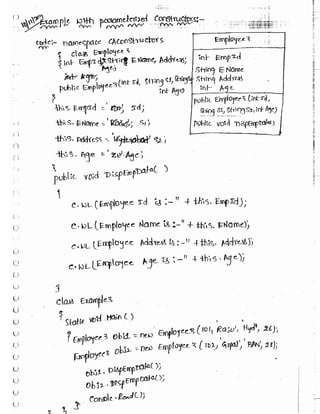 Example with parameterized Constructors:-
code:- namespace CAConstructors
{
class Employee3
{ int EmpId, String EName, Address;
int Age;
public Employee3(int Id, String S1, String S2, int Age)
{
this. EmpId = Id;
this. EName = S1;
this. Address = S2;
this. Age = Age;
}
public void DispEmpData( )
{
C.WL (Employee Id is :- " + this. EmpId);
C.WL (Employee Name is :- " + this. EName);
C.WL (Employee Address is :- " + this. Address);
C.WL (Employee Age is :- " + this. Age);
}
class Example3
{ Static void Main ( )
{ Employee3 Obj1 = new Employee3 (101, 'Raju', 'Hyd', 26);
Employee3 Obj2 = new Employee3 (102,
Obj1. DispEmpData( );
Obj2. DispEmpData( );
Console.Read( );
} } }
Employee3
int EmpId
String E Name
String Address
int- Age
public Employee3 (int Id, String S1, String S2, int Age)
Public void DispEmpData( )